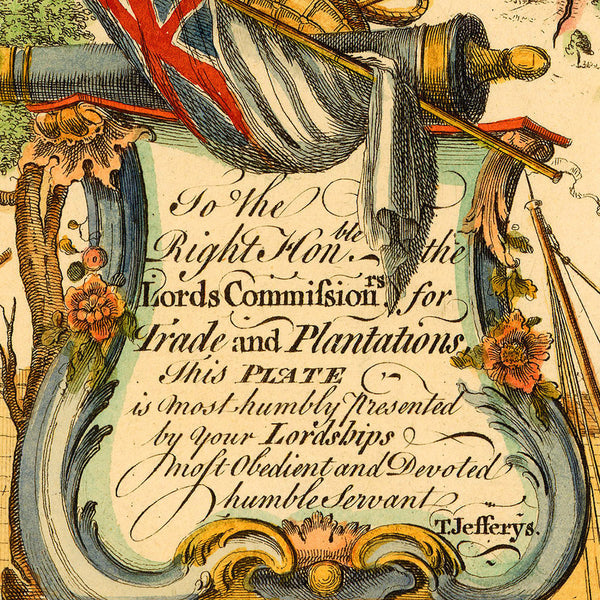 To the
Right Honble. the
Lords Commiſsionrs. for
Trade and Plantations
This PLATE
is most humbly Presented
by your Lordships
most Obedient and Devoted
humble Servant
T. Jefferys.